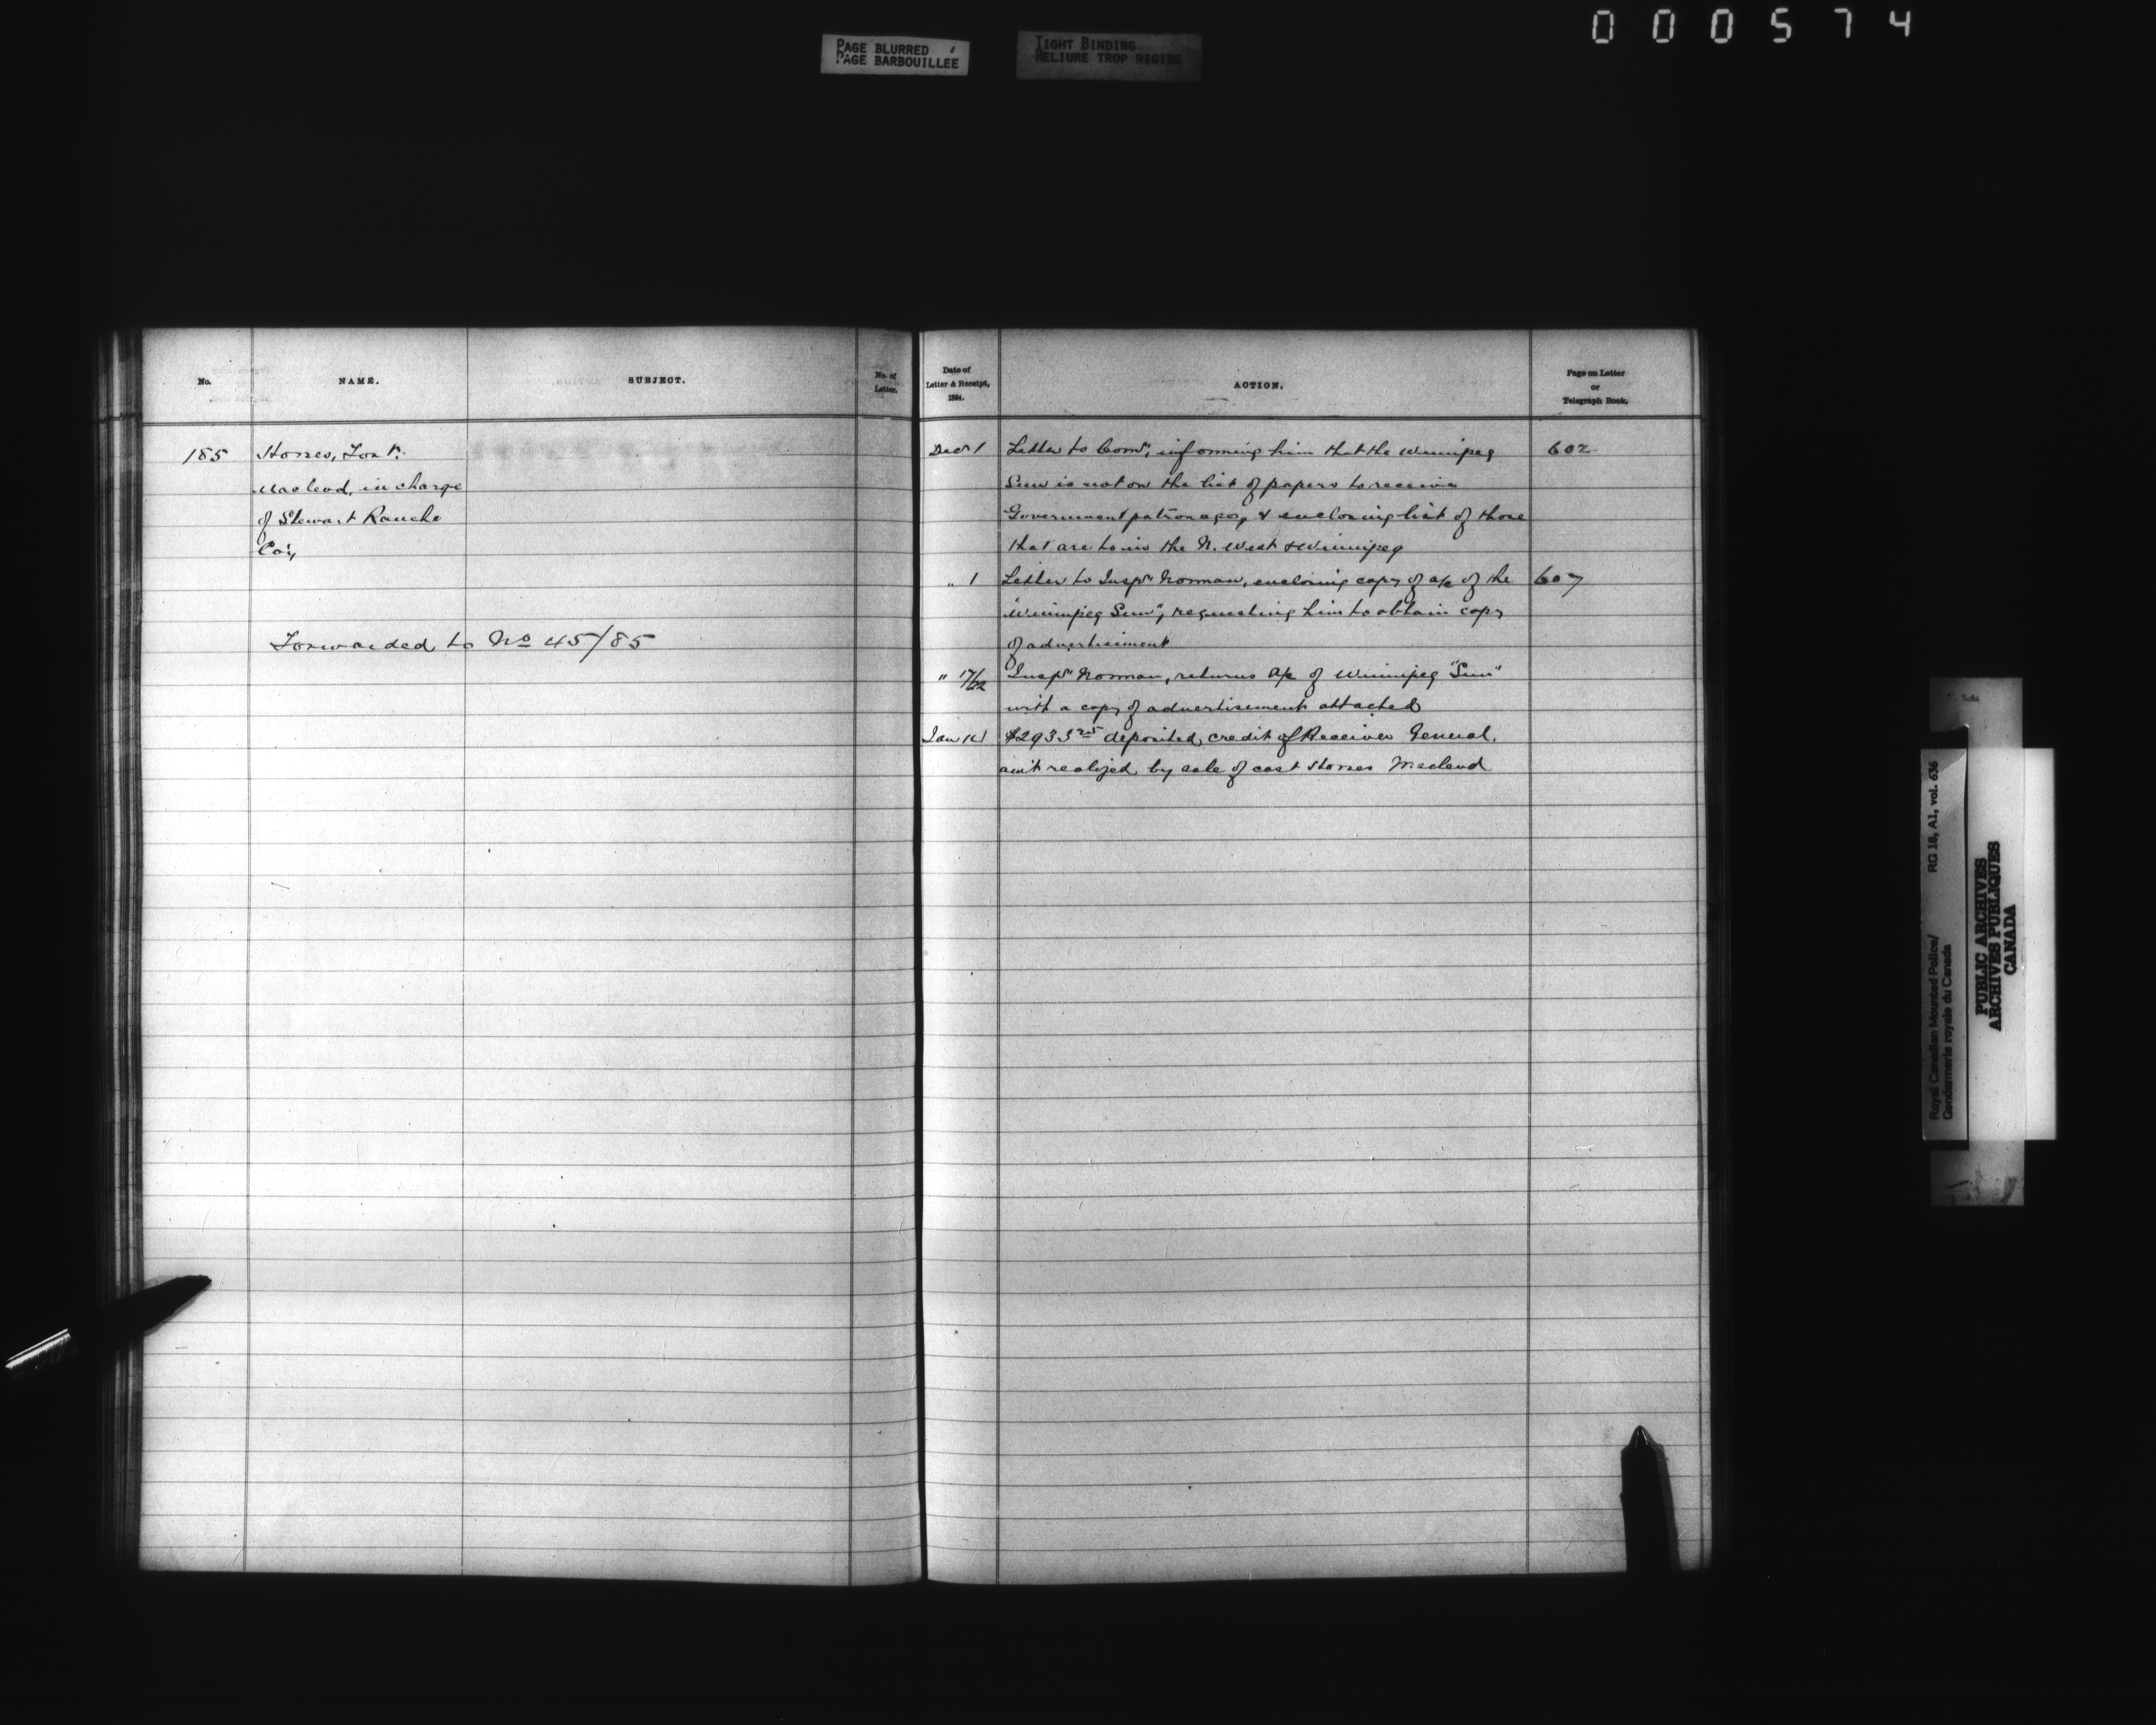 000574
PAGE BLURRED
PAGE BARBOUILLÉE
TIGHT BINDING
RELIURE TROP RIGIDE
No.
NAME.
SUBJECT.
No. of
Letter.
185
Horses, Fort
Macleod, in charge
of Stewart Ranche
Co'y,
Forwarded to No 45/85
Date of
Letter & Receipt,
1884.
ACTION.
Page on Letter
or
Telegraph Book.
Decr 1 Letter to Comr, informing him that the Winnipeg 602
Sun is not on the list of papers to receive
Government patronage, & enclosing list of those
that are to in the N. West & Winnipeg
" 1 Letter to Inspr Norman, enclosing copy of a/c of the 607
"Winnipeg Sun", requesting him to obtain copy
of advertisement
" 17/22 Inspr Norman, returns a/c of Winnipeg "Sun"
with a copy of advertisement attached
Jan 14 $2933 25 deposited credit of Receiver General.
am't realized by sale of cast Horses Macleod
Royal Canadian Mounted Police/
Gendarmerie royale du Canada
RG 18, A1, vol. 636
PUBLIC ARCHIVES
ARCHIVES PUBLIQUES
CANADA